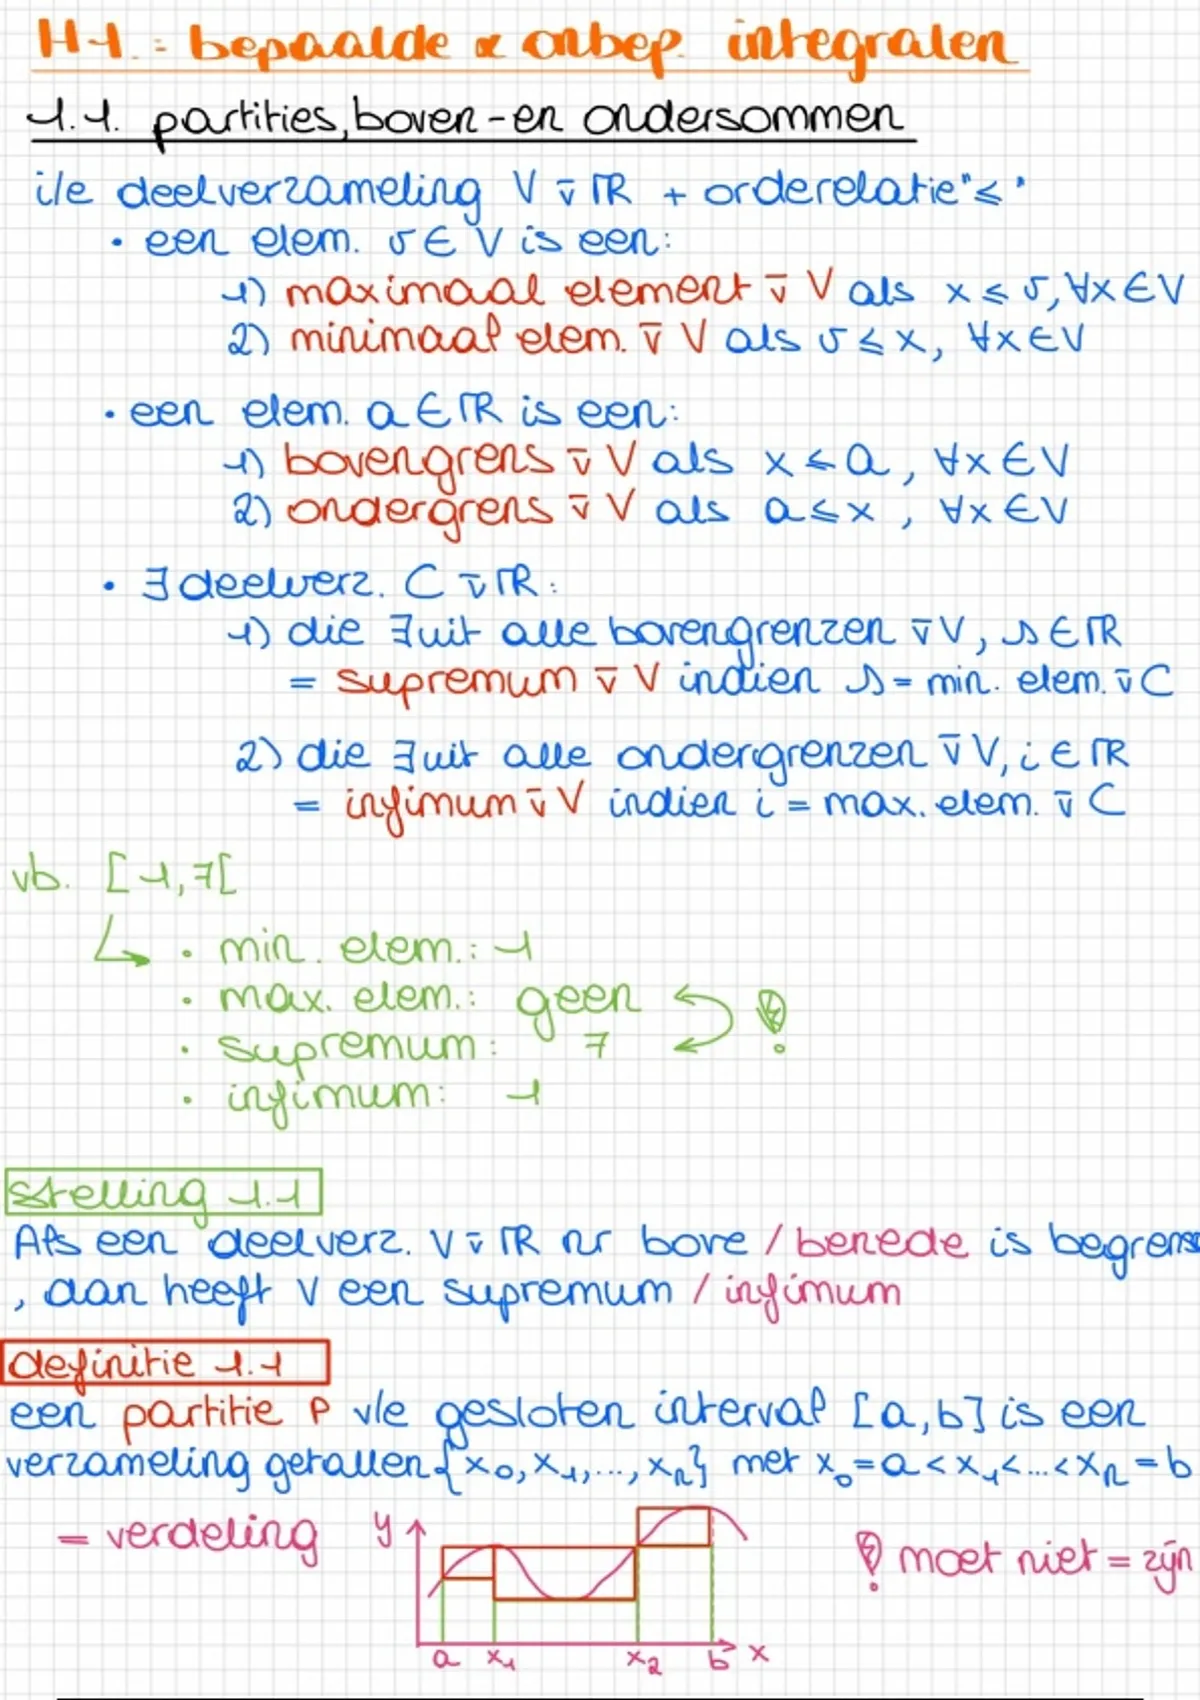 H1.: bepaalde & onbep. integralen
1.1. partities, boven- en ondersommen
i/e deelverzameling V v̄ ℝ + orderelatie "≤"
• een elem. v ∈ V is een:
1) maximaal element v̄ V als x ≤ v, ∀x ∈ V
2) minimaal elem. v̄ V als v ≤ x, ∀x ∈ V
• een elem. a ∈ ℝ is een:
1) bovengrens v̄ V als x ≤ a, ∀x ∈ V
2) ondergrens v̄ V als a ≤ x, ∀x ∈ V
• ∃ deelverz. C v̄ ℝ:
1) die ∃ uit alle bovengrenzen v̄ V, s ∈ ℝ
= supremum v̄ V indien s = min. elem. v̄ C
2) die ∃ uit alle ondergrenzen v̄ V, i ∈ ℝ
= infimum v̄ V indien i = max. elem. v̄ C
vb. [1,7[
↳ • min. elem.: 1
• max. elem.: geen
• supremum: 7
• infimum: 1
stelling 1.1
Als een deelverz. V v̄ ℝ nr bove / benede is begrensd
, dan heeft V een supremum / infimum
definitie 1.1
een partitie P v/e gesloten interval [a,b] is een
verzameling getallen {x₀, x₁, ..., xₙ} met x₀ = a < x₁ < ... < xₙ = b
= verdeling y ! moet niet = zijn
a x₁ x₂ b x